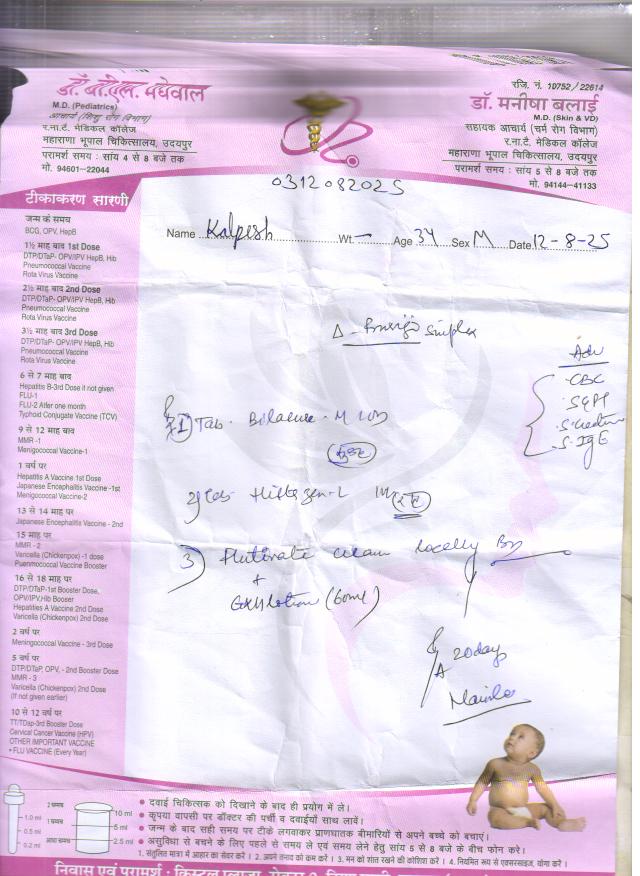 डॉ. बी.एल. मेघवाल
M.D. (Pediatrics)
आचार्य (शिशु रोग विभाग)
र.ना.टै. मेडिकल कॉलेज
महाराणा भूपाल चिकित्सालय, उदयपुर
परामर्श समय : सांय 4 से 8 बजे तक
मो. 94601-22044
रजि. नं. 10752/22614
डॉ. मनीषा बलाई
M.D. (Skin & VD)
सहायक आचार्य (चर्म रोग विभाग)
र.ना.टै. मेडिकल कॉलेज
महाराणा भूपाल चिकित्सालय, उदयपुर
परामर्श समय : सांय 5 से 8 बजे तक
मो. 94144-41133
0312082025
Name Kalpesh Wt. - Age 34 Sex M Date 12-8-25
टीकाकरण सारणी
जन्म के समय
BCG, OPV, HepB
1½ माह बाद 1st Dose
DTP/DTaP- OPV/IPV HepB, Hib
Pneumococcal Vaccine
Rota Virus Vaccine
2½ माह बाद 2nd Dose
DTP/DTaP- OPV/IPV HepB, Hib
Pneumococcal Vaccine
Rota Virus Vaccine
3½ माह बाद 3rd Dose
DTP/DTaP- OPV/IPV HepB, Hib
Pneumococcal Vaccine
Rota Virus Vaccine
6 से 7 माह बाद
Hepatitis B-3rd Dose if not given
FLU-1
FLU-2 After one month
Typhoid Conjugate Vaccine (TCV)
9 से 12 माह बाद
MMR -1
Menigococcal Vaccine-1
1 वर्ष पर
Hepatitis A Vaccine 1st Dose
Japanese Encephalitis Vaccine -1st
Menigococcal Vaccine-2
13 से 14 माह पर
Japanese Encephalitis Vaccine - 2nd
15 माह पर
MMR - 2
Varicella (Chickenpox) -1 dose
Puenmococcal Vaccine Booster
16 से 18 माह पर
DTP/DTaP-1st Booster Dose,
OPV/IPV,Hib Booser
Hepatities A Vaccine 2nd Dose
Varicella (Chickenpox) 2nd Dose
2 वर्ष पर
Meningococcal Vaccine - 3rd Dose
5 वर्ष पर
DTP/DTaP, OPV, - 2nd Booster Dose
MMR - 3
Varicella (Chickenpox) 2nd Dose
(If not given earlier)
10 से 12 वर्ष पर
TT/TDap-3rd Booster Dose
Cervical Cancer Vaccine (HPV)
OTHER IMPORTANT VACCINE
• FLU VACCINE (Every Year)
Δ - simplex
Adv
CBC
SGPT
S. Creatinine
S. IgE
1) Tab. Bilacure-M
2) Tab.
3) Flutivate cream locally
+
lotion (60ml)
20 days
दवाई चिकित्सक को दिखाने के बाद ही प्रयोग में ले।
कृपया वापसी पर डॉक्टर की पर्ची व दवाईयाँ साथ लावें।
जन्म के बाद सही समय पर टीके लगवाकर प्राणघातक बीमारियों से अपने बच्चे को बचाएं।
असुविधा से बचने के लिए पहले से समय ले एवं समय लेने हेतु सांय 5 से 8 बजे के बीच फोन करे।
1. संतुलित मात्रा में आहार का सेवर करें। 2. अपने तनाव को कम करे। 3. मन को शांत रखने की कोशिश करे। 4. नियमित रूप से एक्सरसाइज, योगा करें।
2 चम्मच
1 चम्मच
आधा चम्मच
1.0 ml
0.5 ml
0.2 ml
10 ml
5 ml
2.5 ml
निवास एवं परामर्श :